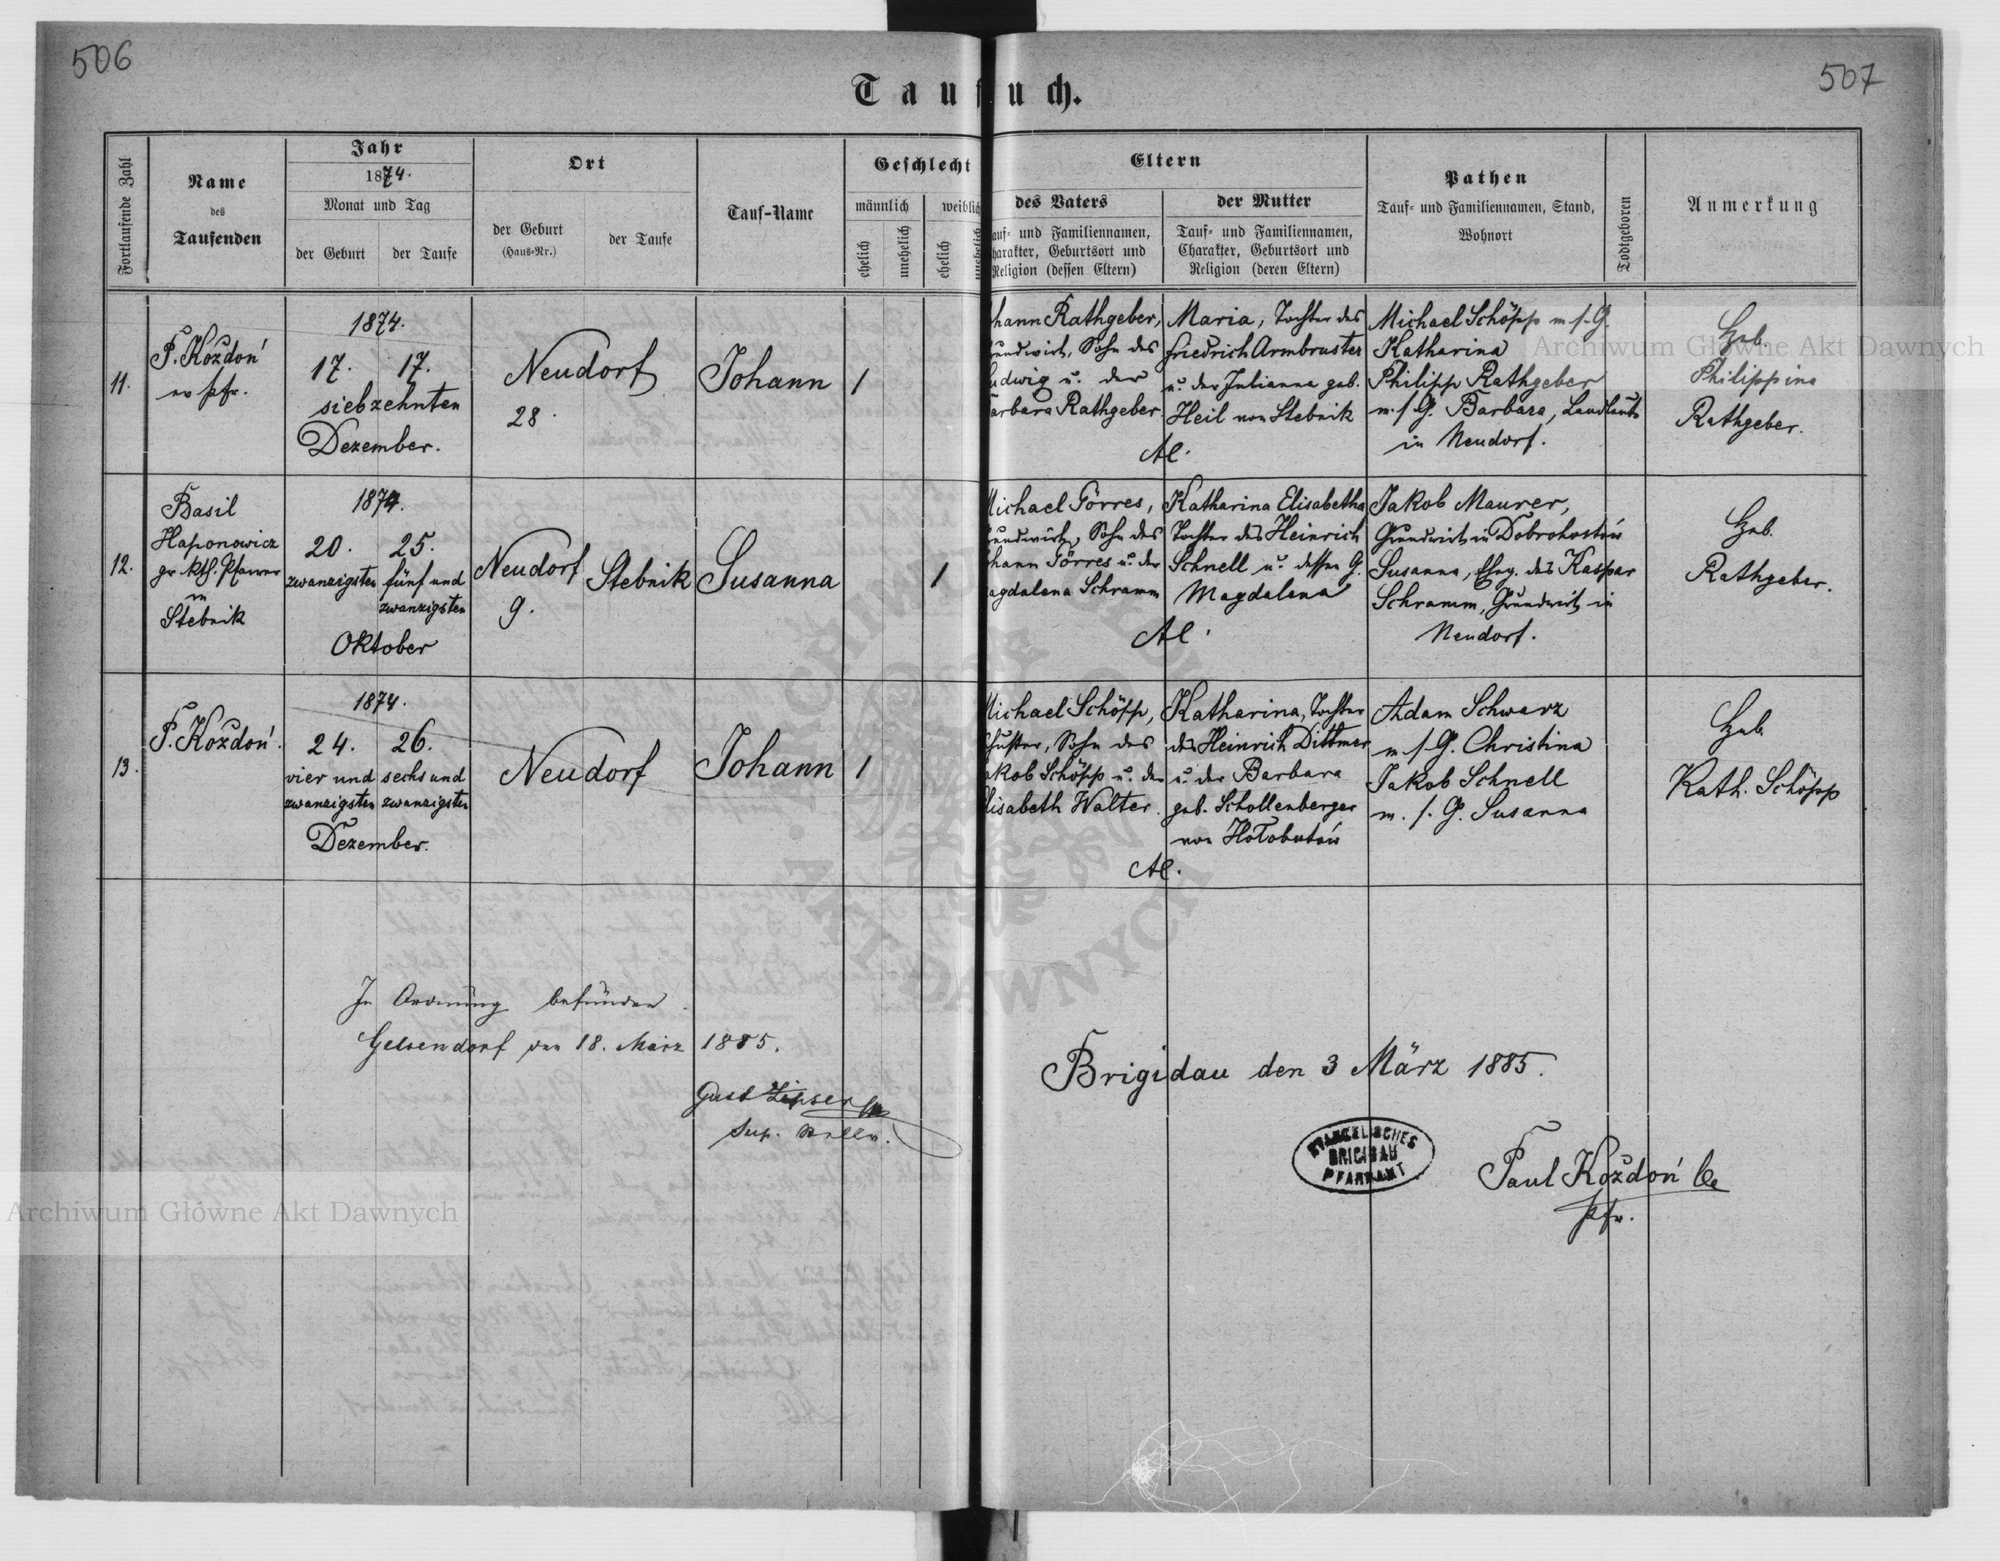 506
507
Taufbuch.
Fortlaufende Zahl
Name
des
Taufenden
Jahr
1874.
Monat und Tag
der Geburt
der Taufe
Ort
der Geburt
(Haus-Nr.)
der Taufe
Tauf-Name
Geschlecht
männlich
weiblich
ehelich
unehelich
ehelich
unehelich
Eltern
des Vaters
auf- und Familiennamen,
harakter, Geburtsort und
Religion (dessen Eltern)
der Mutter
Tauf- und Familiennamen,
Charakter, Geburtsort und
Religion (deren Eltern)
Pathen
Tauf- und Familiennamen, Stand,
Wohnort
Todtgeboren
Anmerkung
11.
P. Kożdoń
ev pfr.
1874.
17. 17.
siebzehnten
Dezember.
Neudorf
28
Johann
1
hann Rathgeber,
undwirt, Sohn des
udwig u. der
arbara Rathgeber
Maria, Tochter des
Friedrich Armbruster
u. der Julianna geb.
Heil von Stebnik
Al.
Michael Schöpp m s. G.
Katharina
Philipp Rathgeber
m. s. G. Barbara, Landleute
in Neudorf.
Heb.
Philippina
Rathgeber.
12.
Basil
Haponowicz
gr. kth. Pfarrer
in
Stebnik
1874.
20. 25.
zwanzigsten
fünf und
zwanzigsten
Oktober
Neudorf
9.
Stebnik
Susanna
1
Michael Görres,
undwirth, Sohn des
ohann Görres u. der
agdalena Schramm
Katharina Elisabetha
Tochter des Heinrich
Schnell u. dessen G.
Magdalena
Al.
Jakob Maurer,
Grundwirt in Dobrohostów
Susanna, Eheg. des Kaspar
Schramm, Grundwirt in
Neudorf.
Heb.
Rathgeber.
13.
P. Kożdoń.
1874.
24. 26.
vier und
zwanzigsten
sechs und
zwanzigsten
Dezember.
Neudorf
Johann
1
Michael Schöpp,
huster, Sohn des
akob Schöpp u. der
lisabeth Walter.
Katharina, Tochter
des Heinrich Dittmer
u. der Barbara
geb. Schollenberger
von Hołobutów
Al.
Adam Schwarz
m. s. G. Christina
Jakob Schnell
m. s. G. Susanna
Heb.
Kath. Schöpp
In Ordnung befunden.
Gelsendorf den 18. März 1885.
Gust Zipser
Sup.
Brigidau den 3 März 1885.
EVANGELISCHES
BRIGIDAU
PFARRAMT
Paul Kożdoń
pfr.
Archiwum Główne Akt Dawnych
Archiwum Główne Akt Dawnych